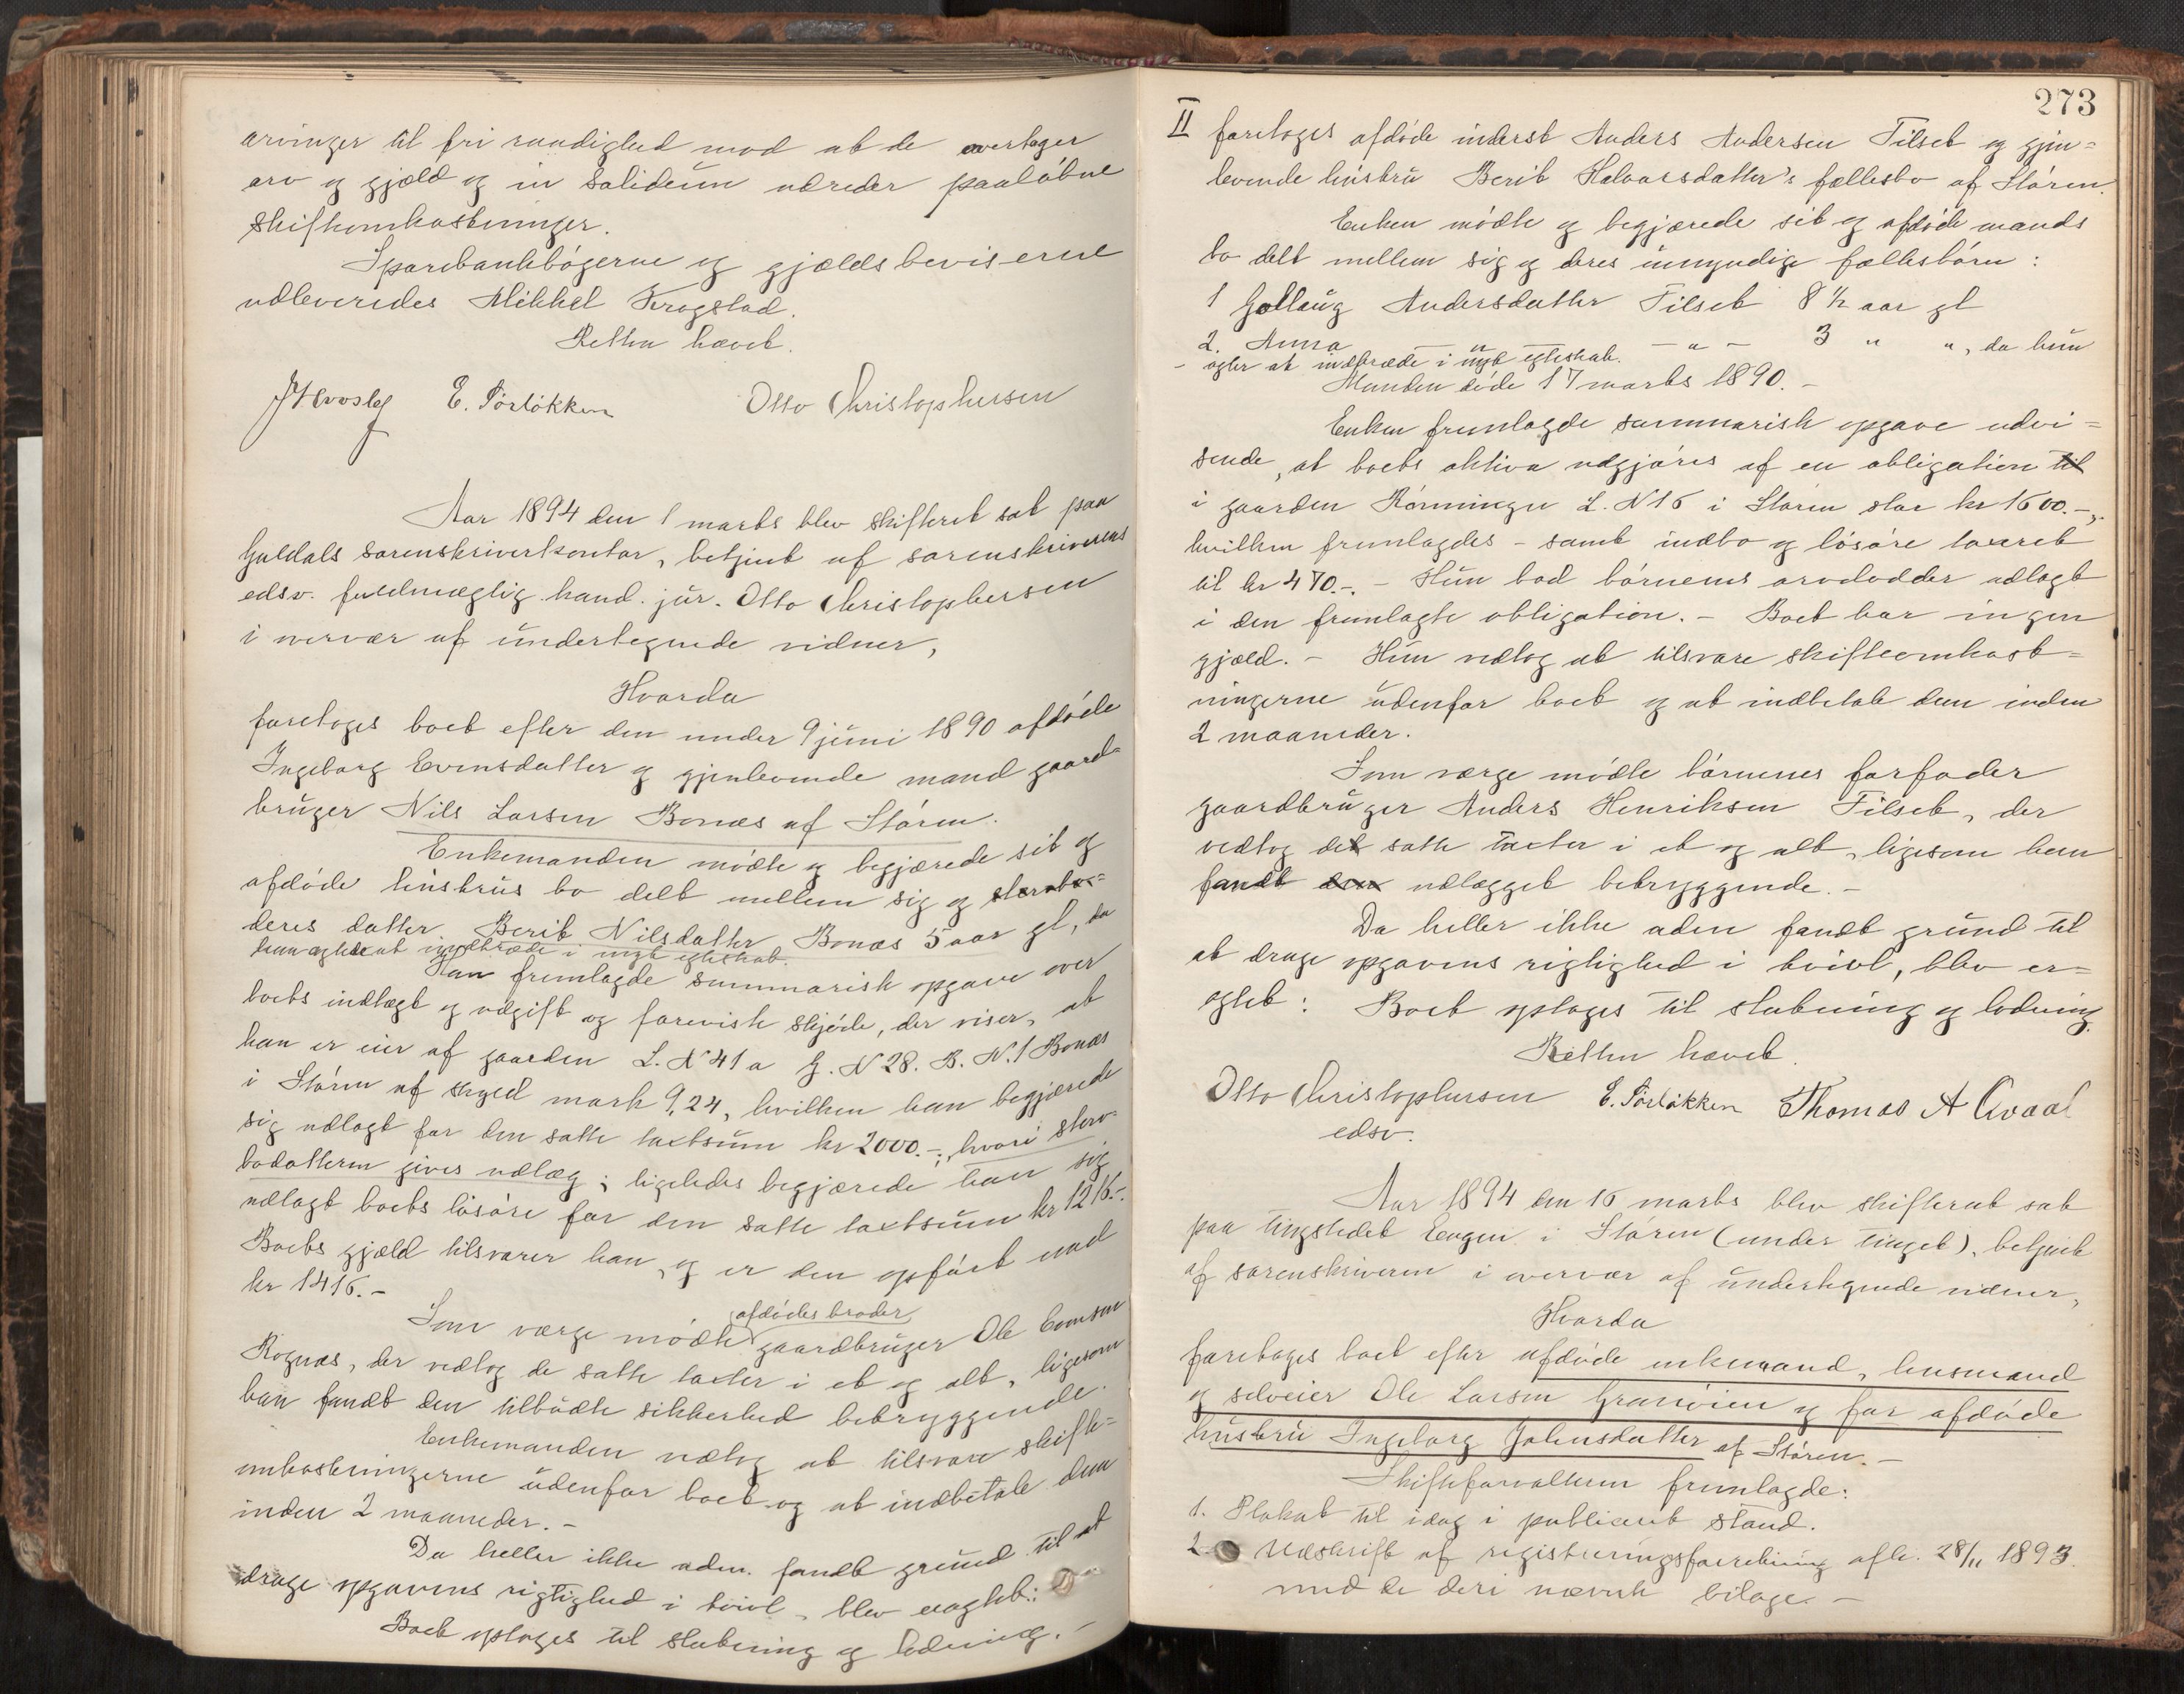 arvinger til fri raadighed mod at de overtager
arv og gjæld og in solidum udreder paaløbne
skifteomkostninger.
Sparebankbøgerne og gjældsbeviserne
udleveredes Mikkel Krogstad.
Retten hævet.
E. Sørløkken Otto Christophersen
Aar 1894 den 1 marts blev skifteret sat paa
Guldals sorenskriverkontor, betjent af sorenskriverens
edsv. fuldmægtig kand. jur. Otto Christophersen
i overvær af undertegnede vidner,
Hvorda
foretoges boet efter den under 9 juni 1890 afdøde
Ingeborg Evensdatter og gjenlevende mand gaard-
bruger Nils Larsen Bonæs af Støren.
Enkemanden mødte og begjærede sit og
afdøde hustrus bo delt mellem sig og
deres datter Berit Nilsdatter Bonæs 5 aar gl, da
han agter at indtræde i nyt egteskab.
Han fremlagde summarisk opgave over
boets indtægt og udgift og foreviste skjøde, der viser, at
han er eier af gaarden L. N 41 a G. N 28. B. N. 1 Bonæs
i Støren af skyld mark 9,24, hvilken han begjærede
sig udlagt for den satte taxtsum kr 2000.-, hvori sterv-
bodatteren gives udlæg; ligeledes begjærede han sig
udlagt boets løsøre for den satte taxtsum kr 1216.-.
Boets gjæld tilsvarer han, og er den opført med
kr 1416.-
afdødes broder
Som værge mødte gaardbruger Ole Evensen
Rognæs, der vedtog de satte taxter i et og alt, ligesom
han fandt den tilbudte sikkerhed betryggende.
Enkemanden vedtog at tilsvare skifte-
omkostningerne udenfor boet og at indbetale dem
inden 2 maaneder.-
Da heller ikke adm. fandt grund til at
drage opgavens rigtighed i tvivl, blev eragtet:
Boet optages til slutning og lodning.-
273
II foretoges afdøde inderst Anders Andersen Tilset og gjen-
levende hustru Berit Halvorsdatter's fællesbo af Støren.
Enken mødte og begjærede sit og afdøde mands
bo delt mellem sig og deres umyndige fællesbørn:
1 Gollaug Andersdatter Tilset 8 1/2 aar gl
2. Anna - " - - " - 3 " ", da hun
agter at indtræde i nyt egteskab.
Manden døde 17 marts 1890.-
Enken fremlagde summarisk opgave udvi-
sende, at boets aktiva udgjøres af en obligation til
i gaarden Rønningen L. N 16 i Støren stor kr 1600.-,
hvilken fremlagdes - samt indbo og løsøre taxeret
til kr 470.-. - Hun bad børnenes arvelodder udlagt
i den fremlagte obligation. - Boet har ingen
gjæld. - Hun vedtog at tilsvare skifteomkost-
ningerne udenfor boet og at indbetale dem inden
2 maaneder.
Som værge mødte børnenes farfader
gaardbruger Anders Henriksen Tilset, der
vedtog de satte taxter i et og alt, ligesom han
fandt den udlægget betryggende.-
Da heller ikke adm fandt grund til
at drage opgavens rigtighed i tvivl, blev er-
agtet: Boet optages til slutning og lodning.
Retten hævet.
Otto Christophersen E. Sørløkken Thomas A Kvaal
edsv.
Aar 1894 den 16 marts blev skifteret sat
paa tingstedet Engen i Støren (under tinget), betjent
af sorenskriveren i overvær af undertegnede vidner,
Hvorda
foretoges boet efter afdøde enkemand, husmand
og selveier Ole Larsen Granøien og før afdøde
hustru Ingeborg Johnsdatter af Støren.-
Skifteforvalteren fremlagde:
1. Plakat til idag i publiseret stand.
2. Udskrift af registreringsforretning afh. 28/11 1893.
med de deri nævnte bilage.-